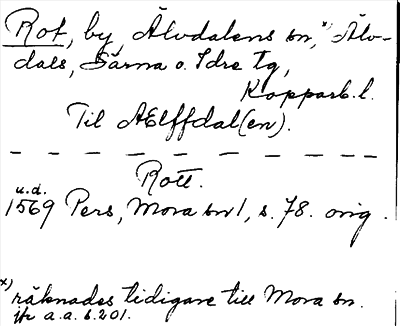 Rot, by, Älvdalens sn,ˣ⁾ Älv-
dals, Särna o. Idre tg,
Kopparb. l.
Til AElffdal(en).
Rott.
u.d.
1569 Pers, Mora sn 1, s. 78. orig.
x) räknades tidigare till Mora sn.
jfr a.a. s. 201.